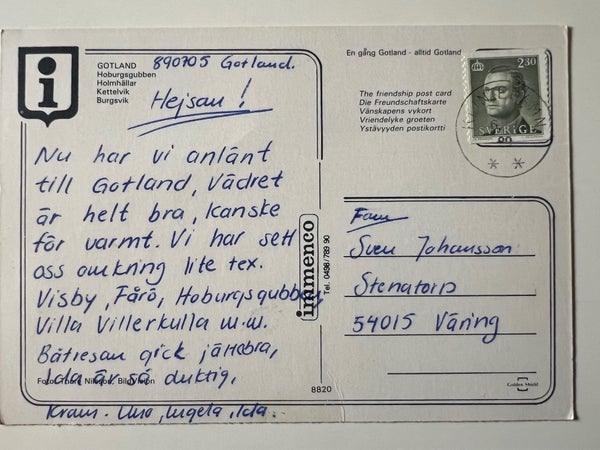 GOTLAND
Hoburgsgubben
Holmhällar
Kettelvik
Burgsvik
890705 Gotland.
Hejsan!
Nu har vi anlänt
till Gotland, Vädret
är helt bra, kanske
för varmt. Vi har sett
oss omkring lite tex.
Visby, Fårö, Hoburgsgubben
Villa Villerkulla m.m.
Båtresan gick jättebra,
Ida är så duktig,
Kram. Uno, Ingela, Ida.
Foto: Nilsson, Bild
8820
immenco
Tel. 0498/789 90
En gång Gotland - alltid Gotland
The friendship post card
Die Freundschaftskarte
Vänskapens vykort
Vriendelyke groeten
Ystävyyden postikortti
2.30
SVERIGE
Fam
Sven Johansson
Stenatorp
54015 Väring
Golden Shield